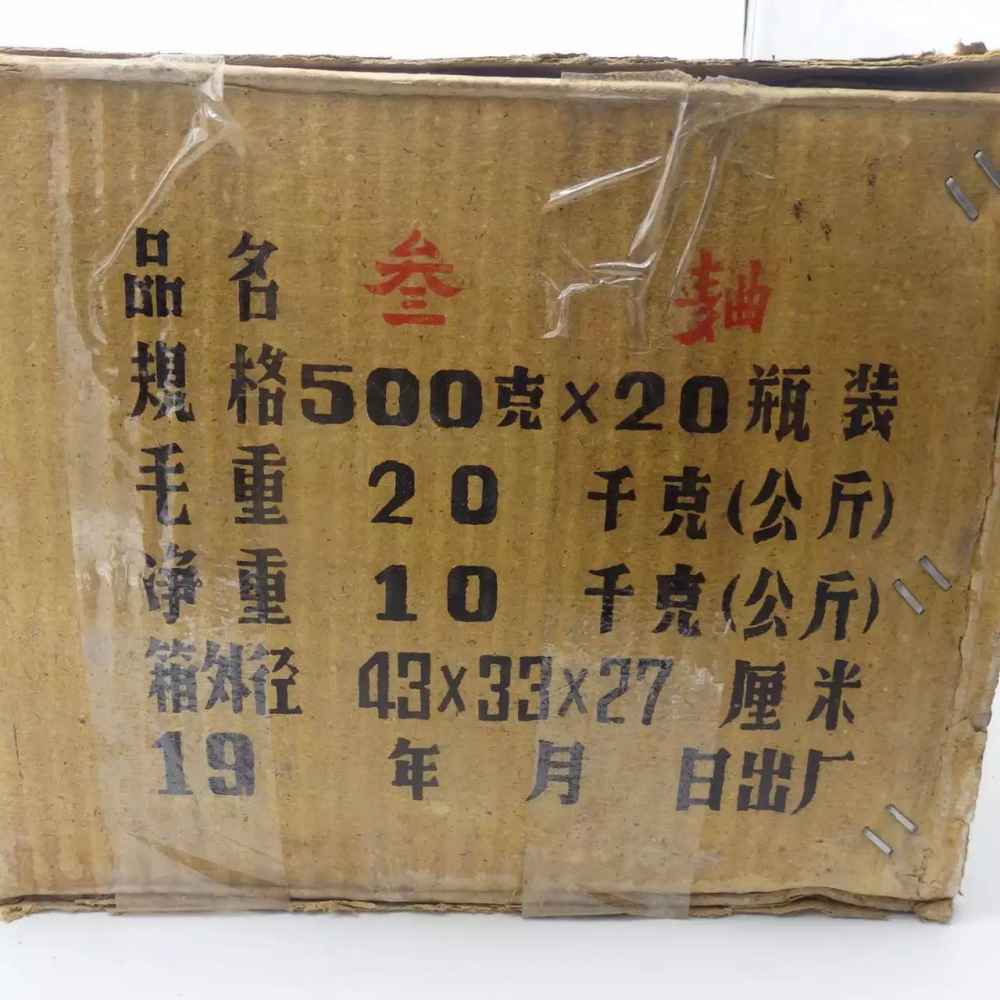 品名 叁 麯
規格 500克×20瓶装
毛重 20 千克(公斤)
净重 10 千克(公斤)
箱外径 43×33×27 厘米
19 年 月 日出厂